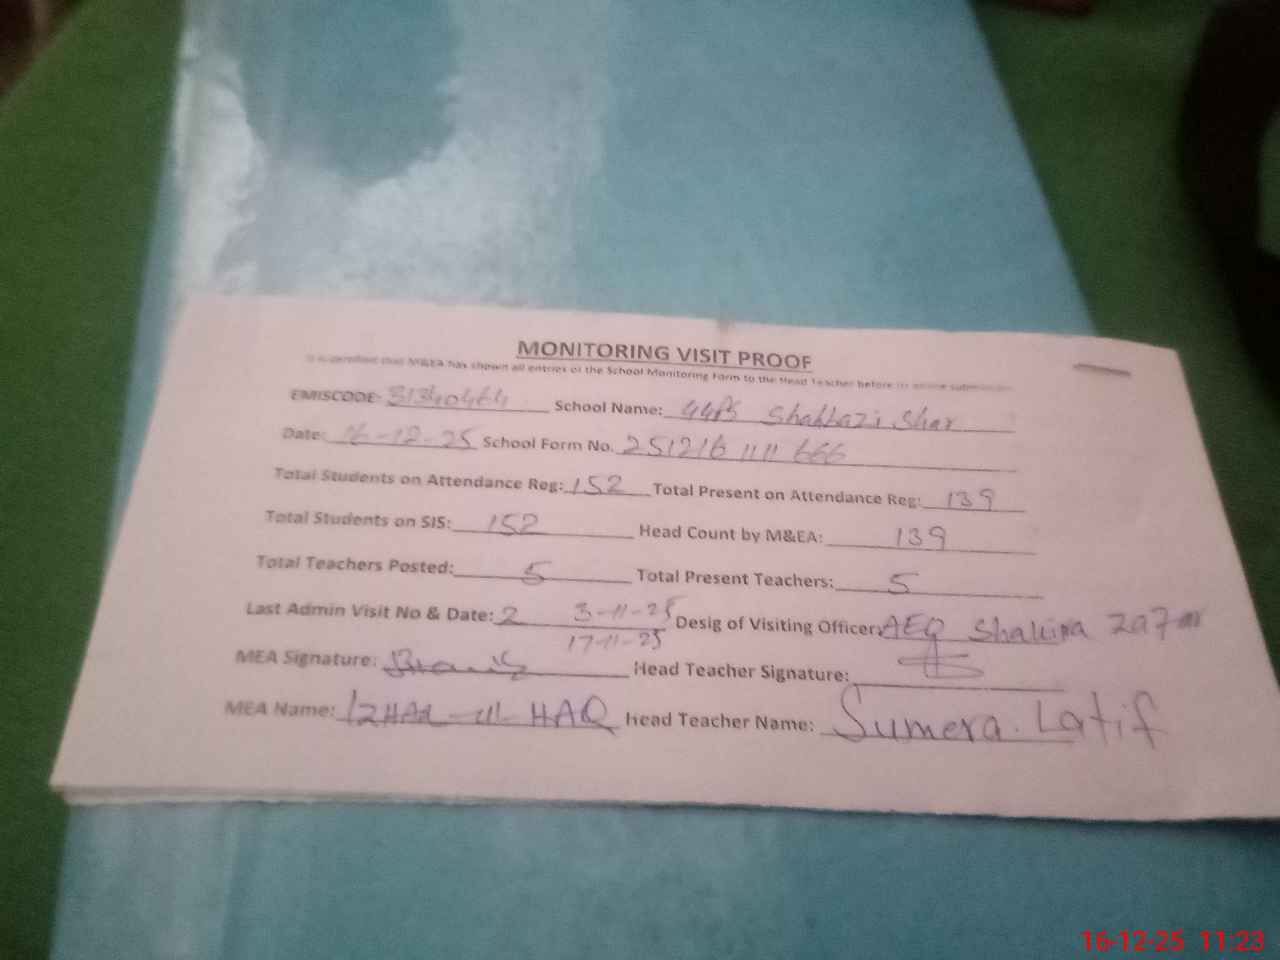 MONITORING VISIT PROOF
It is certified that M&EA has shown all entries of the School Monitoring Form to the Head Teacher before its online submission
EMISCODE: 31340464 School Name: GGPS Shahbazi Shar
Date: 16-12-25 School Form No. 251216 1111 666
Total Students on Attendance Reg: 152 Total Present on Attendance Reg: 139
Total Students on SIS: 152 Head Count by M&EA: 139
Total Teachers Posted: 5 Total Present Teachers: 5
Last Admin Visit No & Date: 2 3-11-25 Desig of Visiting Officer: AEO Shakina Zafar
17-11-25
MEA Signature: Head Teacher Signature:
MEA Name: IZHAR ul HAQ Head Teacher Name: Sumera. Latif
16-12-25 11:23